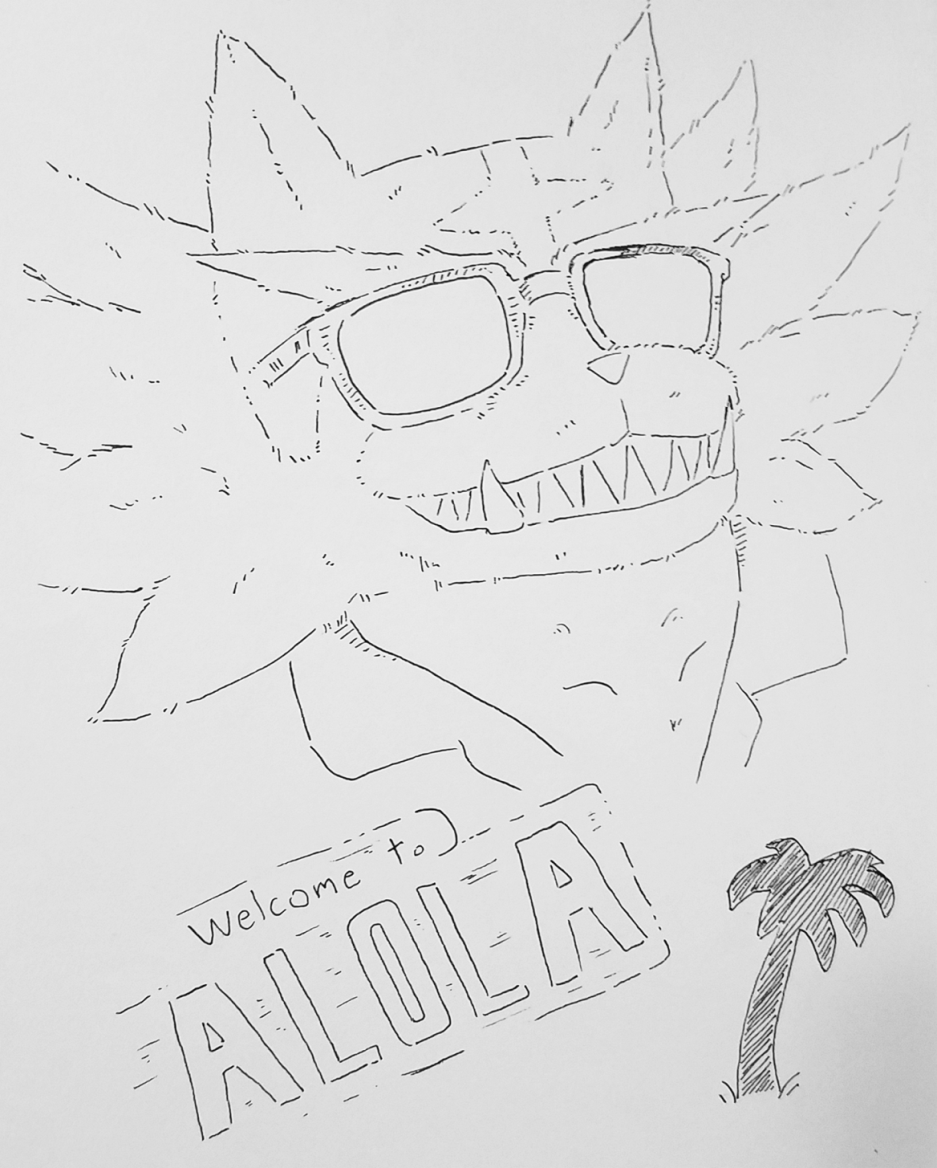 Welcome to
ALOLA